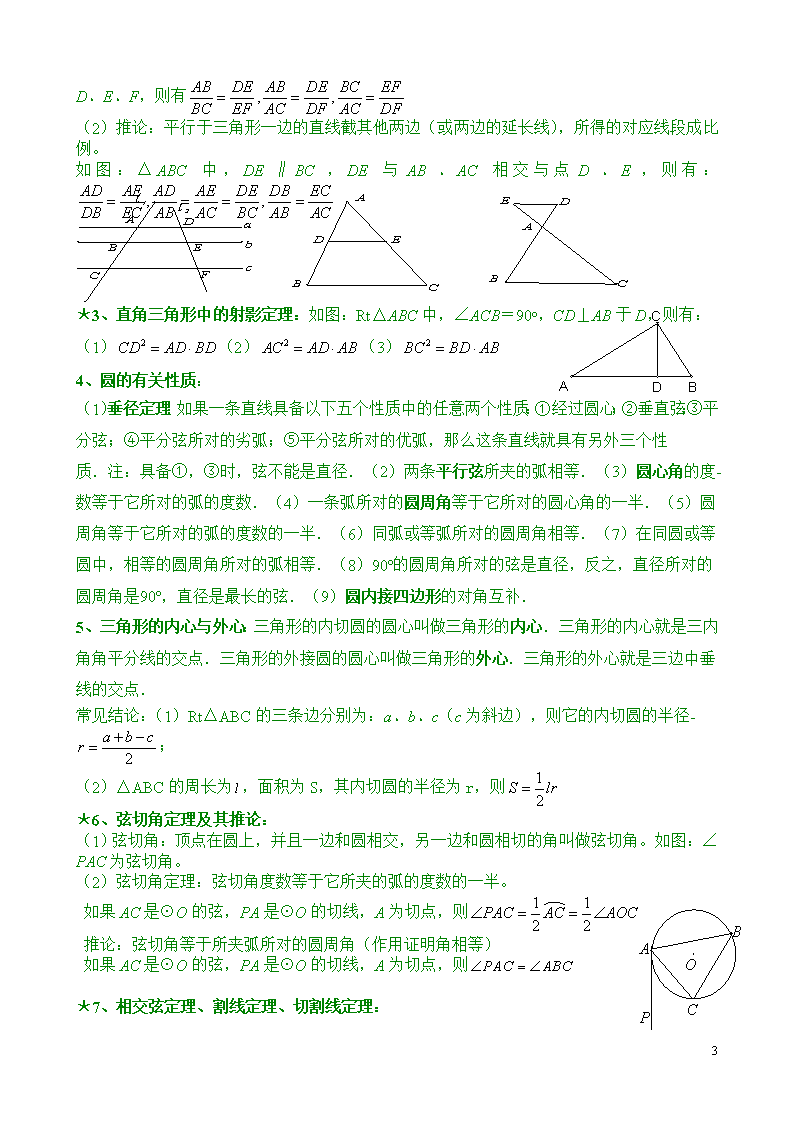 D、E、F，则有 AB/BC = DE/EF , AB/AC = DE/DF , BC/AC = EF/DF
（2）推论：平行于三角形一边的直线截其他两边（或两边的延长线），所得的对应线段成比
例。
如图：△ABC 中，DE∥BC，DE 与 AB、AC 相交与点 D、E，则有：
AD/DB = AE/EC , AD/AB = AE/AC = DE/BC , DB/AB = EC/AC
A D a
B E b
C F c
A
D E
B C
E D
A
B C
★3、直角三角形中的射影定理：如图：Rt△ABC 中，∠ACB＝90°，CD⊥AB 于 D，则有：
（1）CD² = AD·BD（2）AC² = AD·AB（3）BC² = BD·AB
C
A D B
4、圆的有关性质：
（1)垂径定理：如果一条直线具备以下五个性质中的任意两个性质：①经过圆心；②垂直弦；③平
分弦；④平分弦所对的劣弧；⑤平分弦所对的优弧，那么这条直线就具有另外三个性
质．注：具备①，③时，弦不能是直径．（2）两条平行弦所夹的弧相等．（3）圆心角的度-
数等于它所对的弧的度数．（4）一条弧所对的圆周角等于它所对的圆心角的一半．（5）圆
周角等于它所对的弧的度数的一半．（6）同弧或等弧所对的圆周角相等．（7）在同圆或等
圆中，相等的圆周角所对的弧相等．（8）90°的圆周角所对的弦是直径，反之，直径所对的
圆周角是90°，直径是最长的弦．（9）圆内接四边形的对角互补．
5、三角形的内心与外心：三角形的内切圆的圆心叫做三角形的内心．三角形的内心就是三内
角角平分线的交点．三角形的外接圆的圆心叫做三角形的外心．三角形的外心就是三边中垂
线的交点．
常见结论：（1）Rt△ABC 的三条边分别为：a、b、c（c 为斜边），则它的内切圆的半径-
r = (a+b−c)/2；
（2）△ABC 的周长为 l，面积为 S，其内切圆的半径为 r，则 S = 1/2 lr
★6、弦切角定理及其推论：
（1）弦切角：顶点在圆上，并且一边和圆相交，另一边和圆相切的角叫做弦切角。如图：∠
PAC 为弦切角。
（2）弦切角定理：弦切角度数等于它所夹的弧的度数的一半。
如果 AC 是⊙O 的弦，PA 是⊙O 的切线，A 为切点，则∠PAC = 1/2 AC = 1/2 ∠AOC
推论：弦切角等于所夹弧所对的圆周角（作用证明角相等）
如果 AC 是⊙O 的弦，PA 是⊙O 的切线，A 为切点，则∠PAC = ∠ABC
B
A
O
C
P
★7、相交弦定理、割线定理、切割线定理：
3